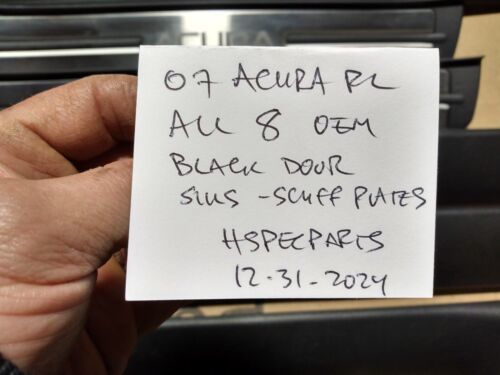 ACURA
07 ACURA RL
ALL 8 OEM
BLACK DOOR
SILLS - SCUFF PLATES
HSPECPARTS
12-31-2024